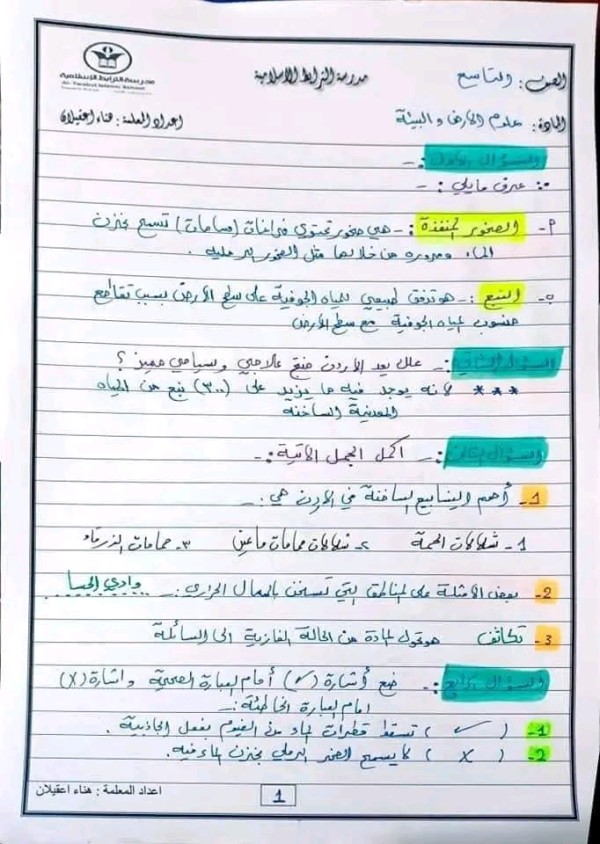 مدرسة الترابط الإسلامية
Al-Tarabut Islamic School
الصف: التاسع
مدرسة الترابط الاسلامية
المادة: علوم الأرض والبيئة
اعداد المعلمة : هناء اعقيلان
السؤال الأول :-
عرف مايلي :-
أ- الصخور المنفذة :- هي صخور تحتوي فراغات (مسامات) تسمح بخزن
الماء ومروره من خلالها مثل الصخور الرملية .
ب- النبع :- هو تدفق طبيعي للمياه الجوفية على سطح الأرض بسبب تقاطع
منسوب المياه الجوفية مع سطح الأرض
السؤال الثاني :- علل يعد الأردن منتجع علاجي وسياحي مميز ؟
*** لأنه يوجد فيه ما يزيد على (٣٠٠) نبع من المياه
المعدنية الساخنة
السؤال الثالث :- اكمل الجمل الآتية :-
1- أهم الينابيع الساخنة في الاردن هي :-
1- شلالات الحمة ٢- شلالات حمامات ماعين ٣- حمامات الزرقاء
2- بعض الأمثلة على المناطق التي تسخن بالحمال الحراري :- وادي الحسا
3- تكاثف هو تحول المادة من الحالة الغازية الى السائلة
السؤال الرابع :- ضع أشارة (✓) أمام العبارة الصحيحة واشارة (X)
امام العبارة الخاطئة :-
1- ( ✓ ) تسقط قطرات الماء من الغيوم بفعل الجاذبية .
2- ( X ) لا يسمح الصخر الرملي بخزن الماء فيه .
اعداد المعلمة : هناء اعقيلان
1